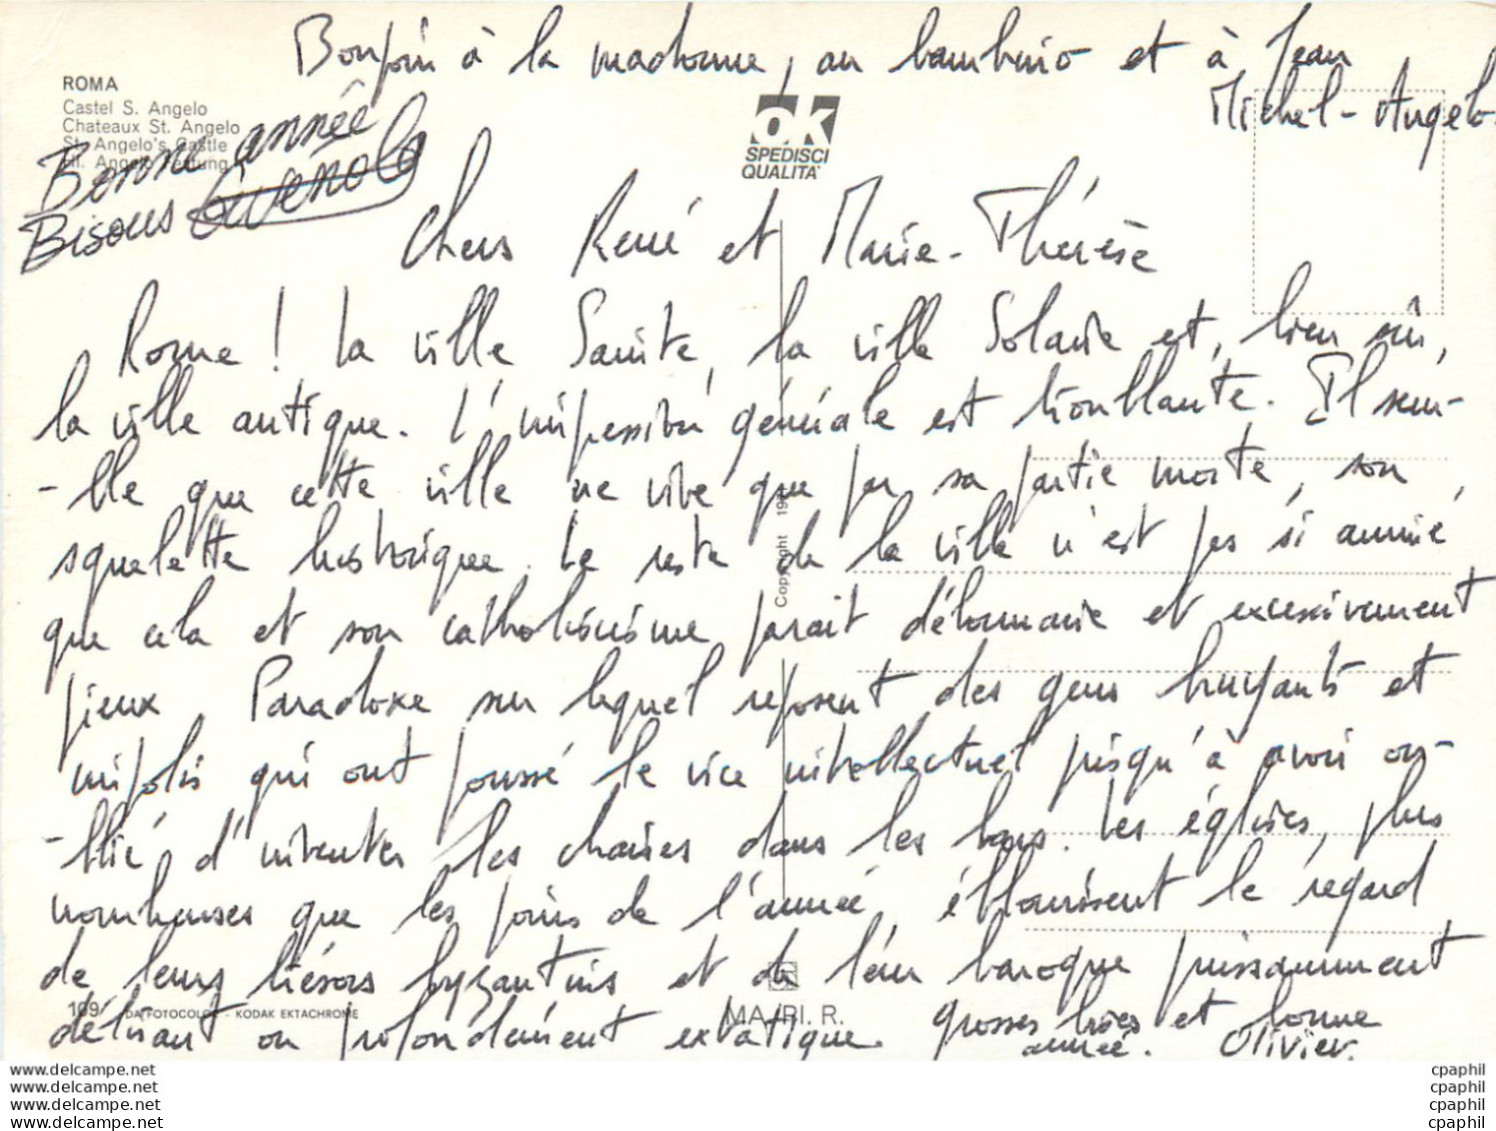 Bonjour à la madonne, au bambino et à Jean
Michel-Angelo.
ROMA
Castel S. Angelo
Chateaux St. Angelo
St. Angelo's Castle
Angelo Festung
Bonne année
Bisous Gwenola
OK
SPEDISCI
QUALITA'
Chers René et Marie-Thérèse
Rome ! La ville Sainte, la ville Solaire et, bien sûr,
la ville antique. L'impression générale est troublante. Il sem-
-ble que cette ville ne vive que par sa partie morte, son
squelette historique. Le reste de la ville n'est pas si animé
que cela et son catholicisme parait débonnaire et excessivement
pieux. Paradoxe sur lequel reposent des gens bruyants et
impolis qui ont poussé le vice intellectuel jusqu'à avoir ou-
-blié d'inventer les chaises dans les bars. Les églises, plus
nombreuses que les jours de l'année, éblouissent le regard
de leurs trésors byzantins et de leur baroque puissamment
délirant ou profondément extatique. grosses bises et bonne
année. Olivier.
Copyright 19
109/ DA FOTOCOLOR - KODAK EKTACHROME
MA.RI. R.
www.delcampe.net
www.delcampe.net
www.delcampe.net
www.delcampe.net
cpaphil
cpaphil
cpaphil
cpaphil